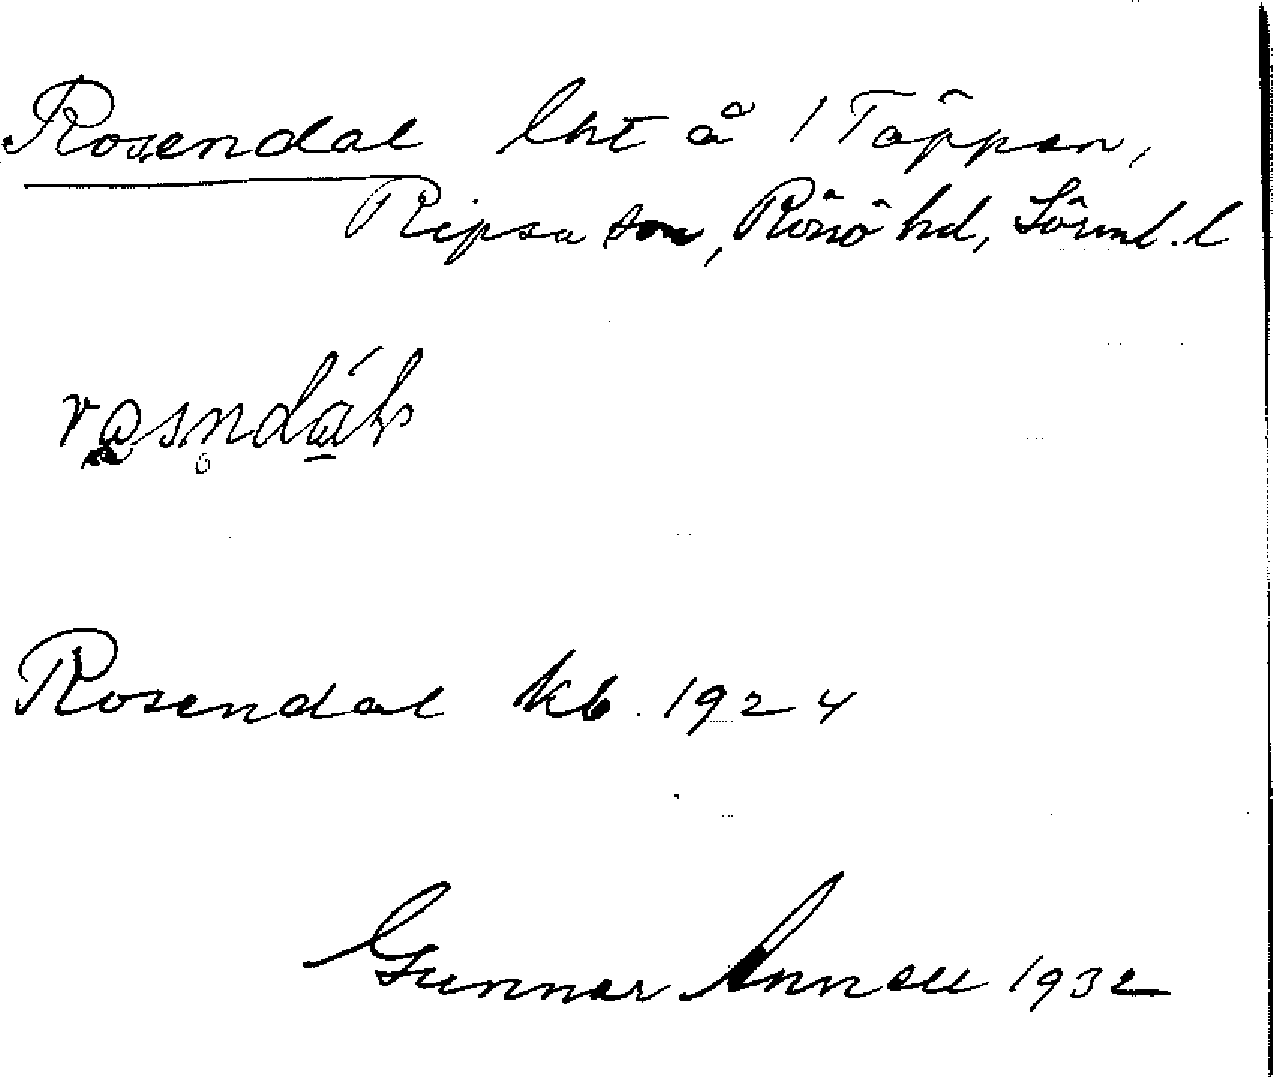 Rosendal lht å 1 Täppan,
Ripsa sn, Rönö hd, Sörml. l
Rosendal kb. 1924
Gunnar Annell 1932